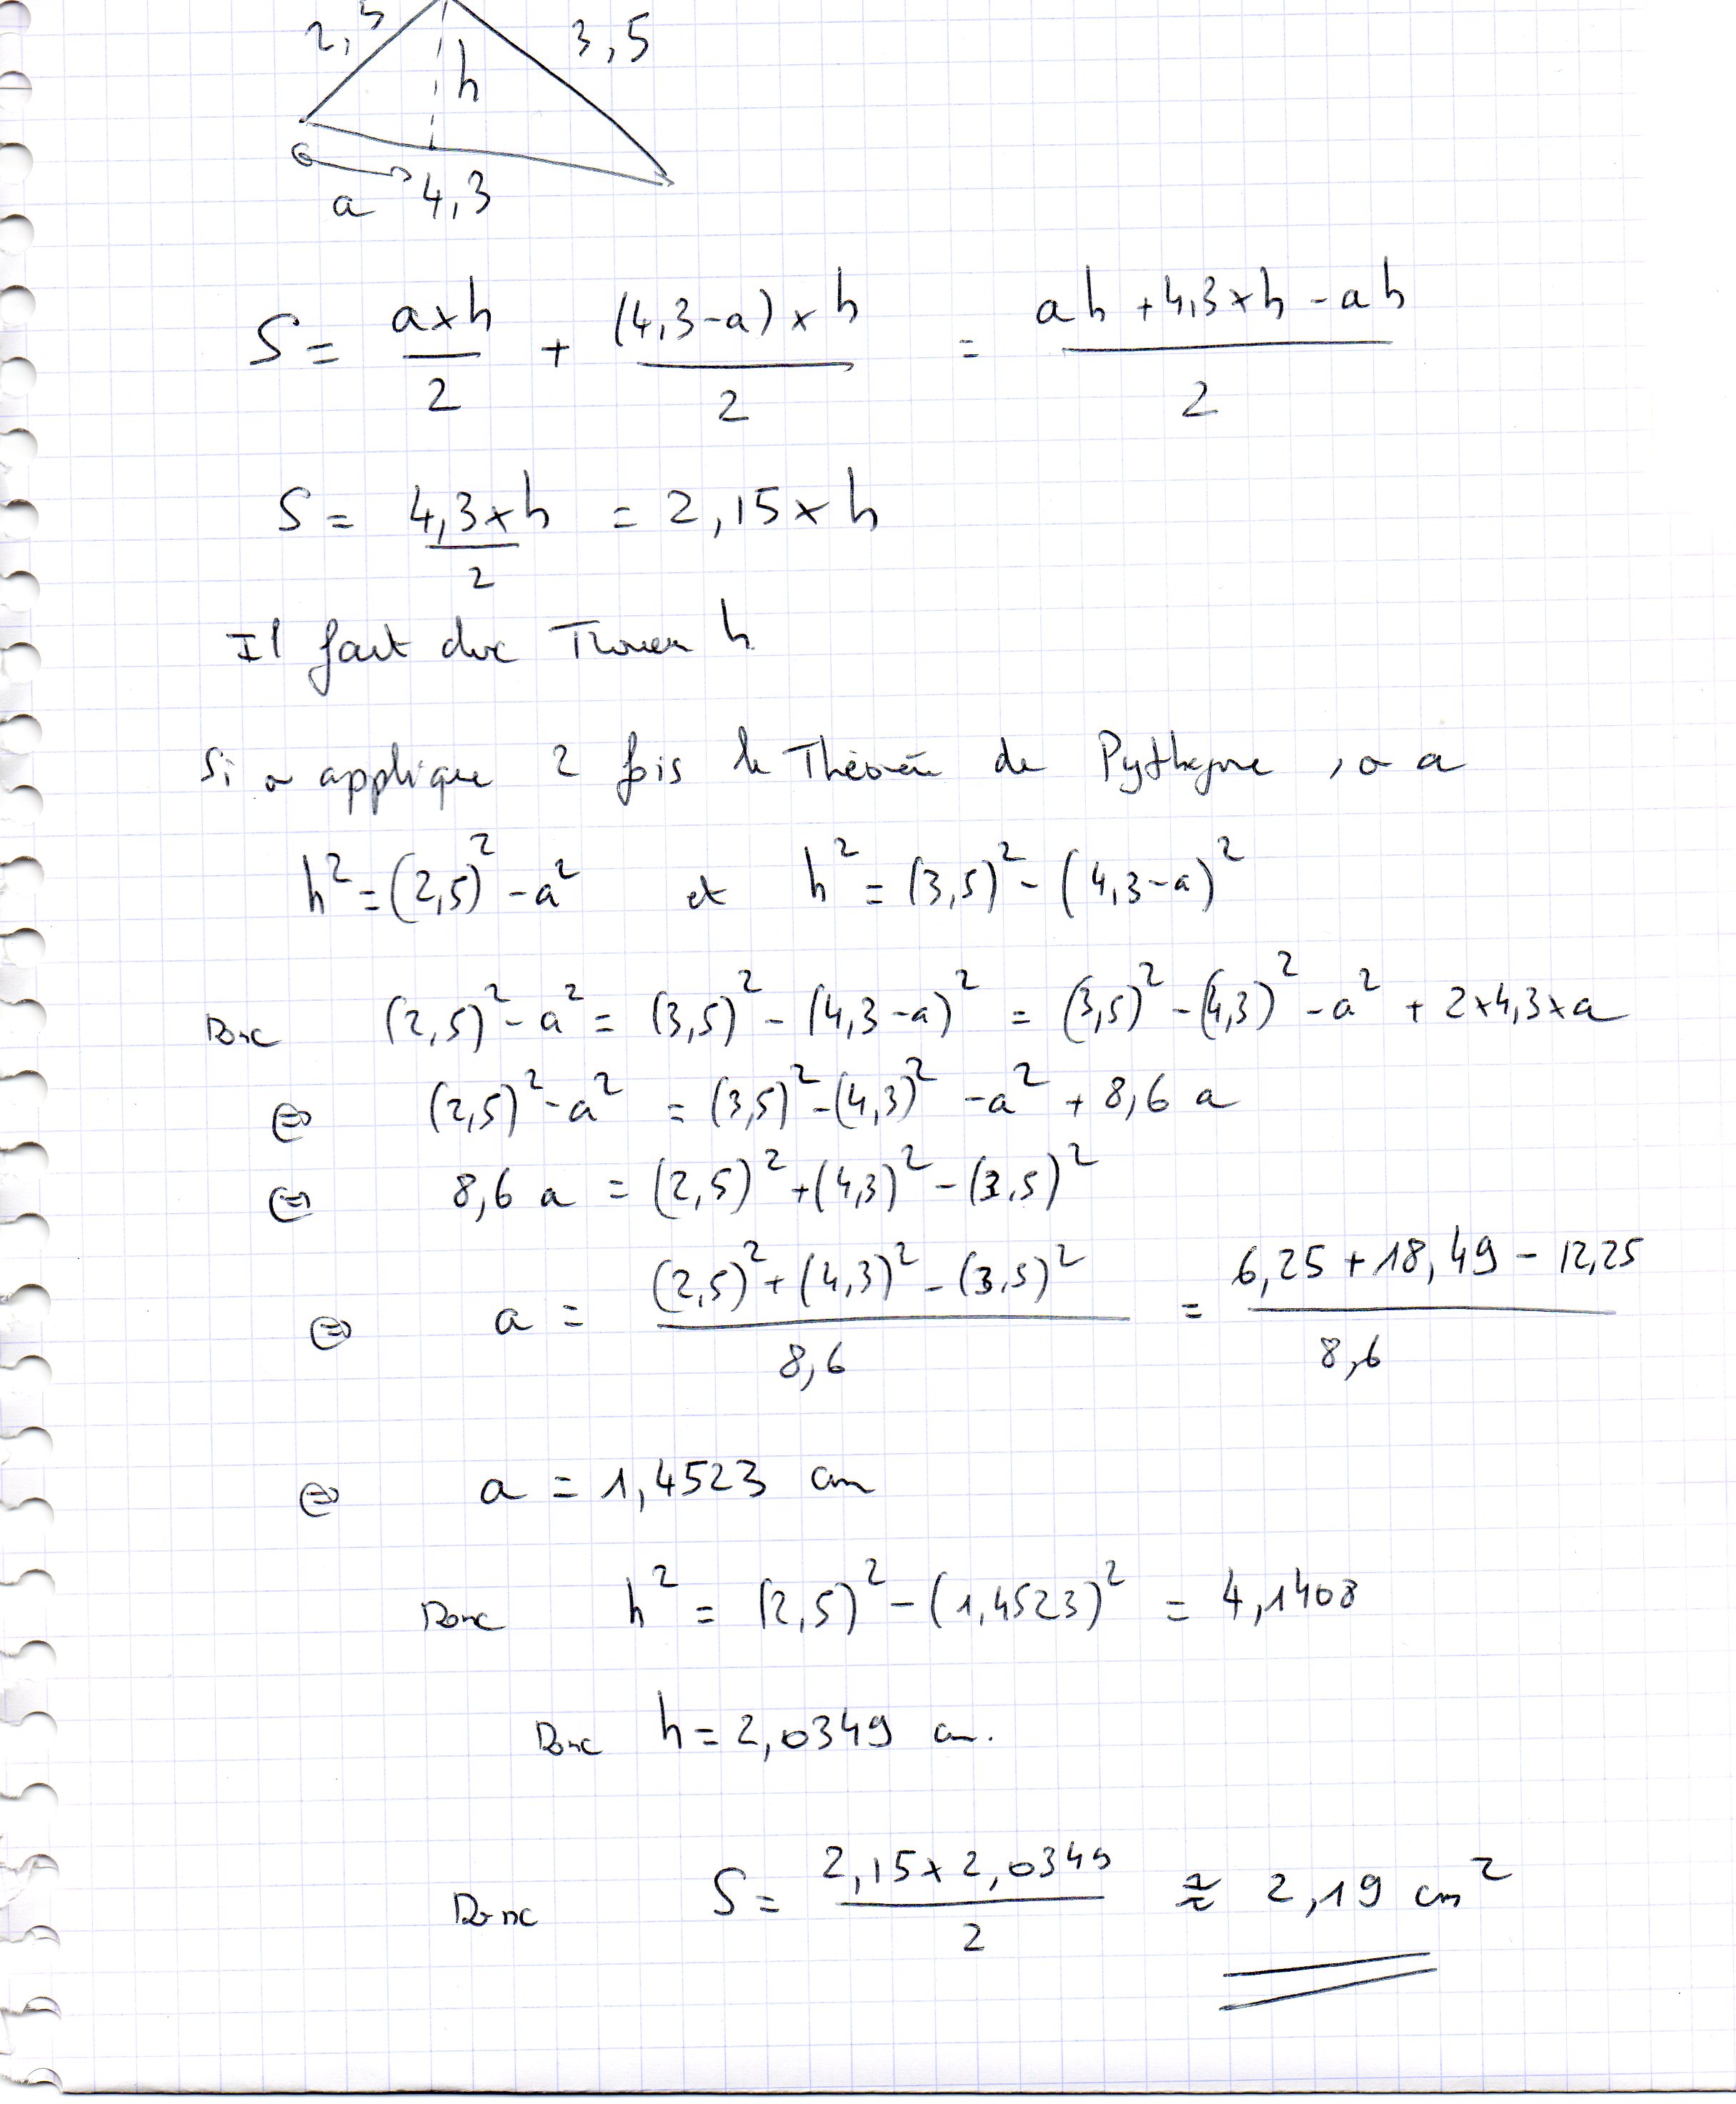 2,5 3,5
h
a 4,3
S = a×h/2 + (4,3-a)×h/2 = ah + 4,3×h - ah/2
S = 4,3×h/2 = 2,15×h
Il faut donc Trouver h
Si on applique 2 fois le Théorème de Pythagore, on a
h² = (2,5)² - a² et h² = (3,5)² - (4,3-a)²
Donc (2,5)² - a² = (3,5)² - (4,3-a)² = (3,5)² - (4,3)² - a² + 2×4,3×a
⇔ (2,5)² - a² = (3,5)² - (4,3)² - a² + 8,6 a
⇔ 8,6 a = (2,5)² + (4,3)² - (3,5)²
⇔ a = (2,5)² + (4,3)² - (3,5)²/8,6 = 6,25 + 18,49 - 12,25/8,6
⇔ a = 1,4523 cm
Donc h² = (2,5)² - (1,4523)² = 4,1408
Donc h = 2,0349 cm.
Donc S = 2,15×2,0349/2 ≈ 2,19 cm²